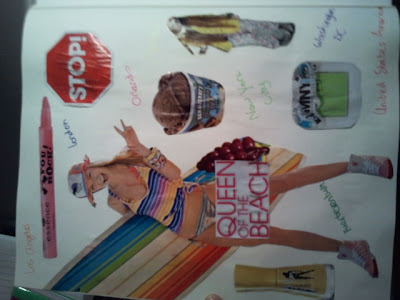 STOP!
Orlando
London
Los Angeles
essence
YOU
ROCK!
New York
City
Washington
DC
United States America
MINT
QUEEN
OF THE
BEACH